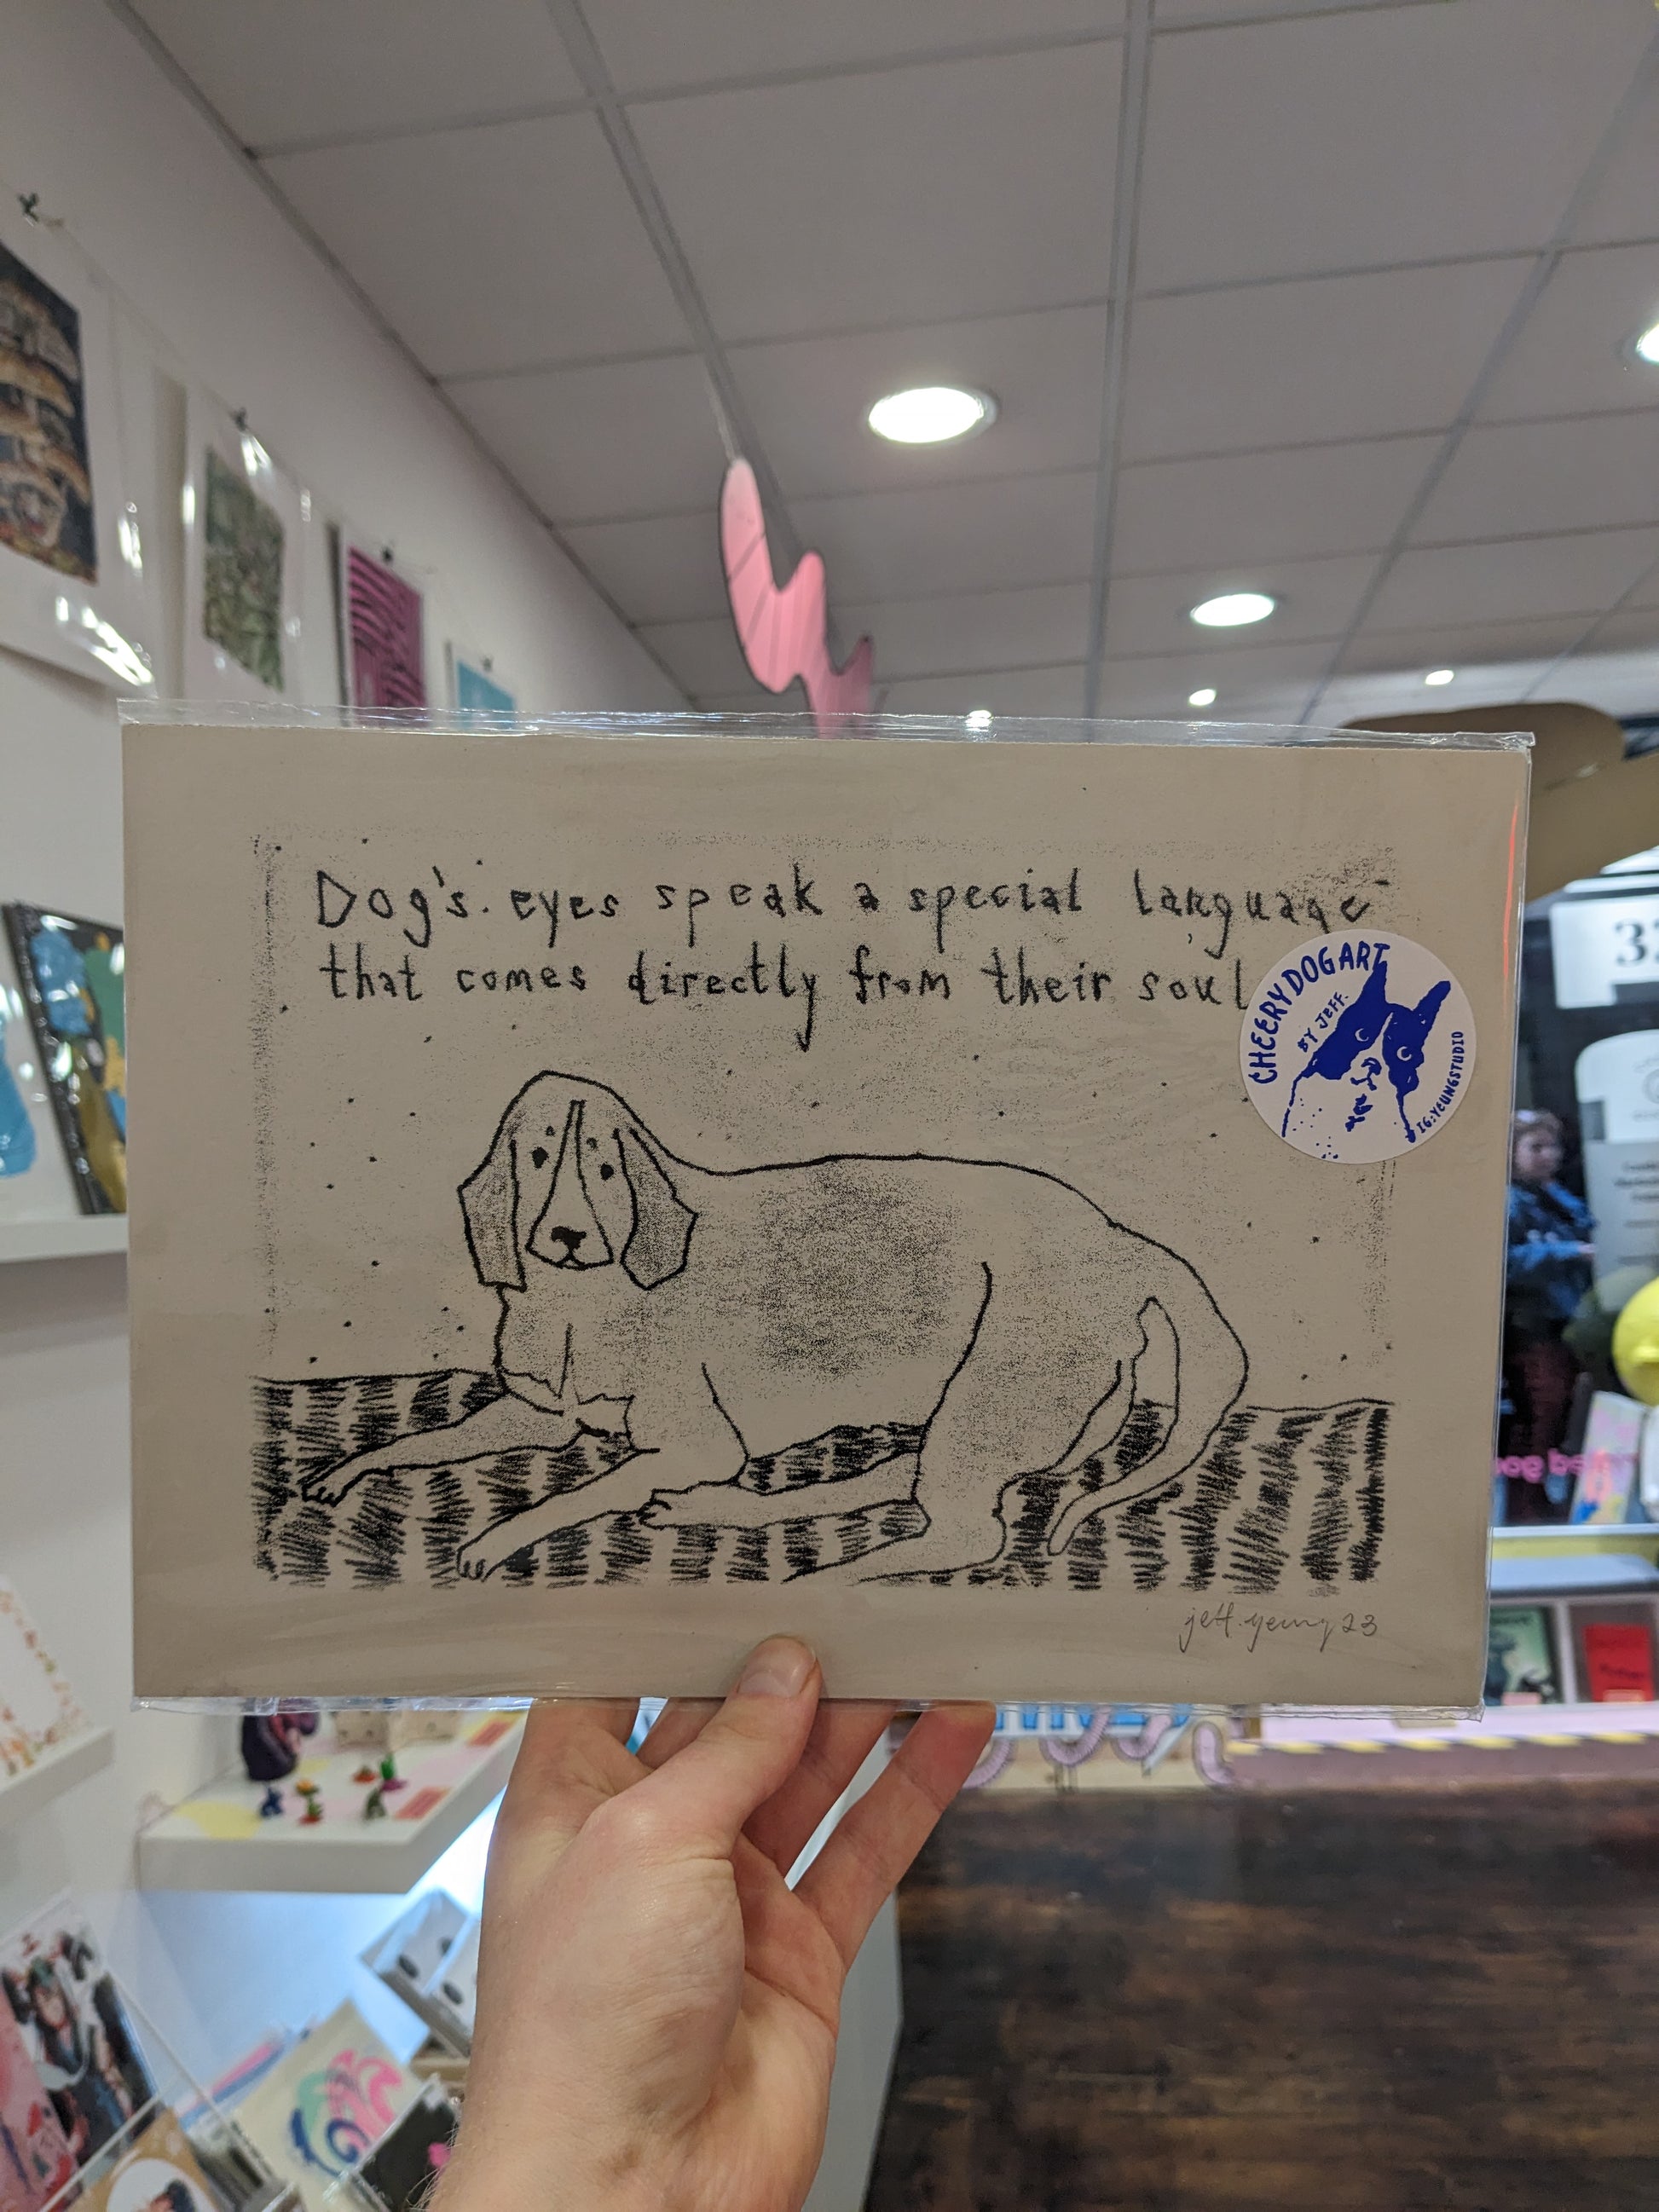 Dog's. eyes speak a special language
that comes directly from their soul
CHEERYDOGART
BY JEFF.
IG:YEUNGSTUDIO
jeff.yeung 23